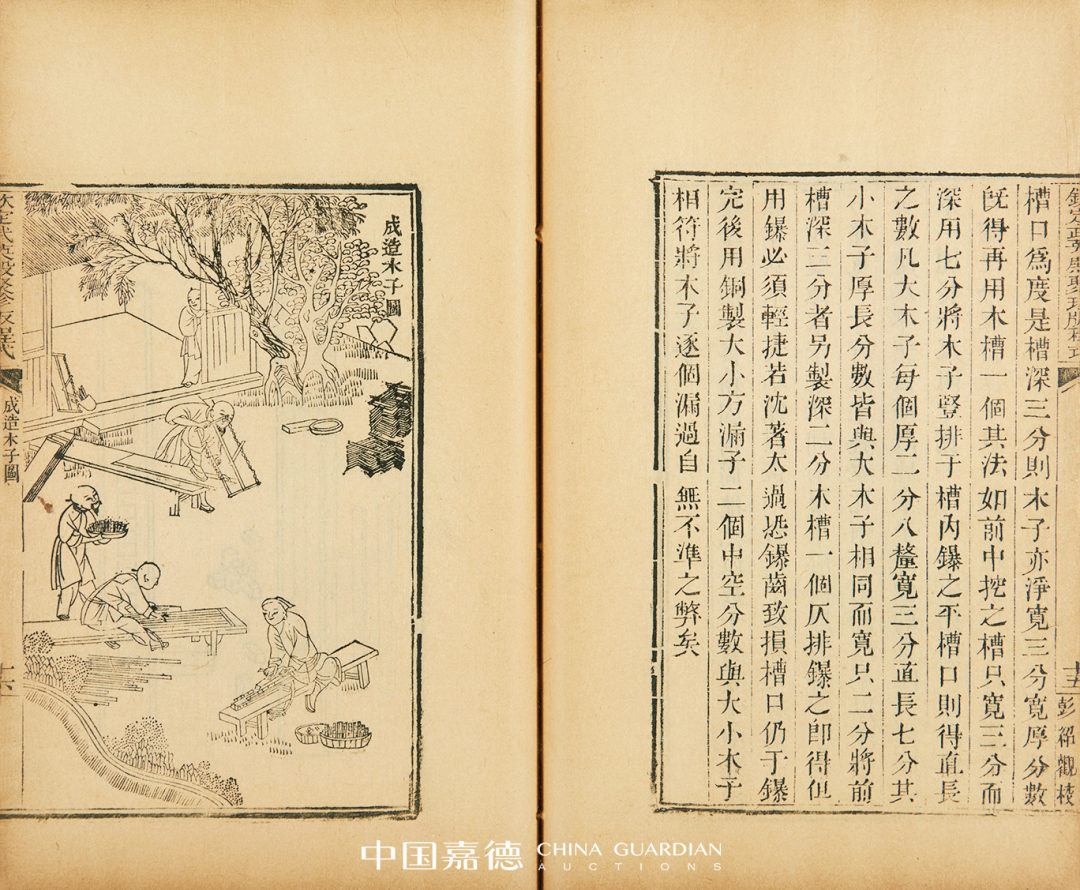 欽定武英殿聚珍版程式
十五
彭紹觀校
槽口爲度是槽深三分則木子亦淨寬三分寬厚分數
旣得再用木槽一個其法如前中挖之槽只寬三分而
深用七分將木子豎排于槽內鑤之平槽口則得直長
之數凡大木子每個厚二分八釐寬三分直長七分其
小木子厚長分數皆與大木子相同而寬只二分將前
槽深三分者另製深二分木槽一個仄排鑤之即得但
用鑤必須輕捷若沈著太過恐鑤齒致損槽口仍于鑤
完後用銅製大小方漏子二個中空分數與大小木子
相符將木子逐個漏過自無不準之弊矣
成造木子圖
欽定武英殿聚珍版程式
成造木子圖
十六
中国嘉德 CHINA GUARDIAN
AUCTIONS